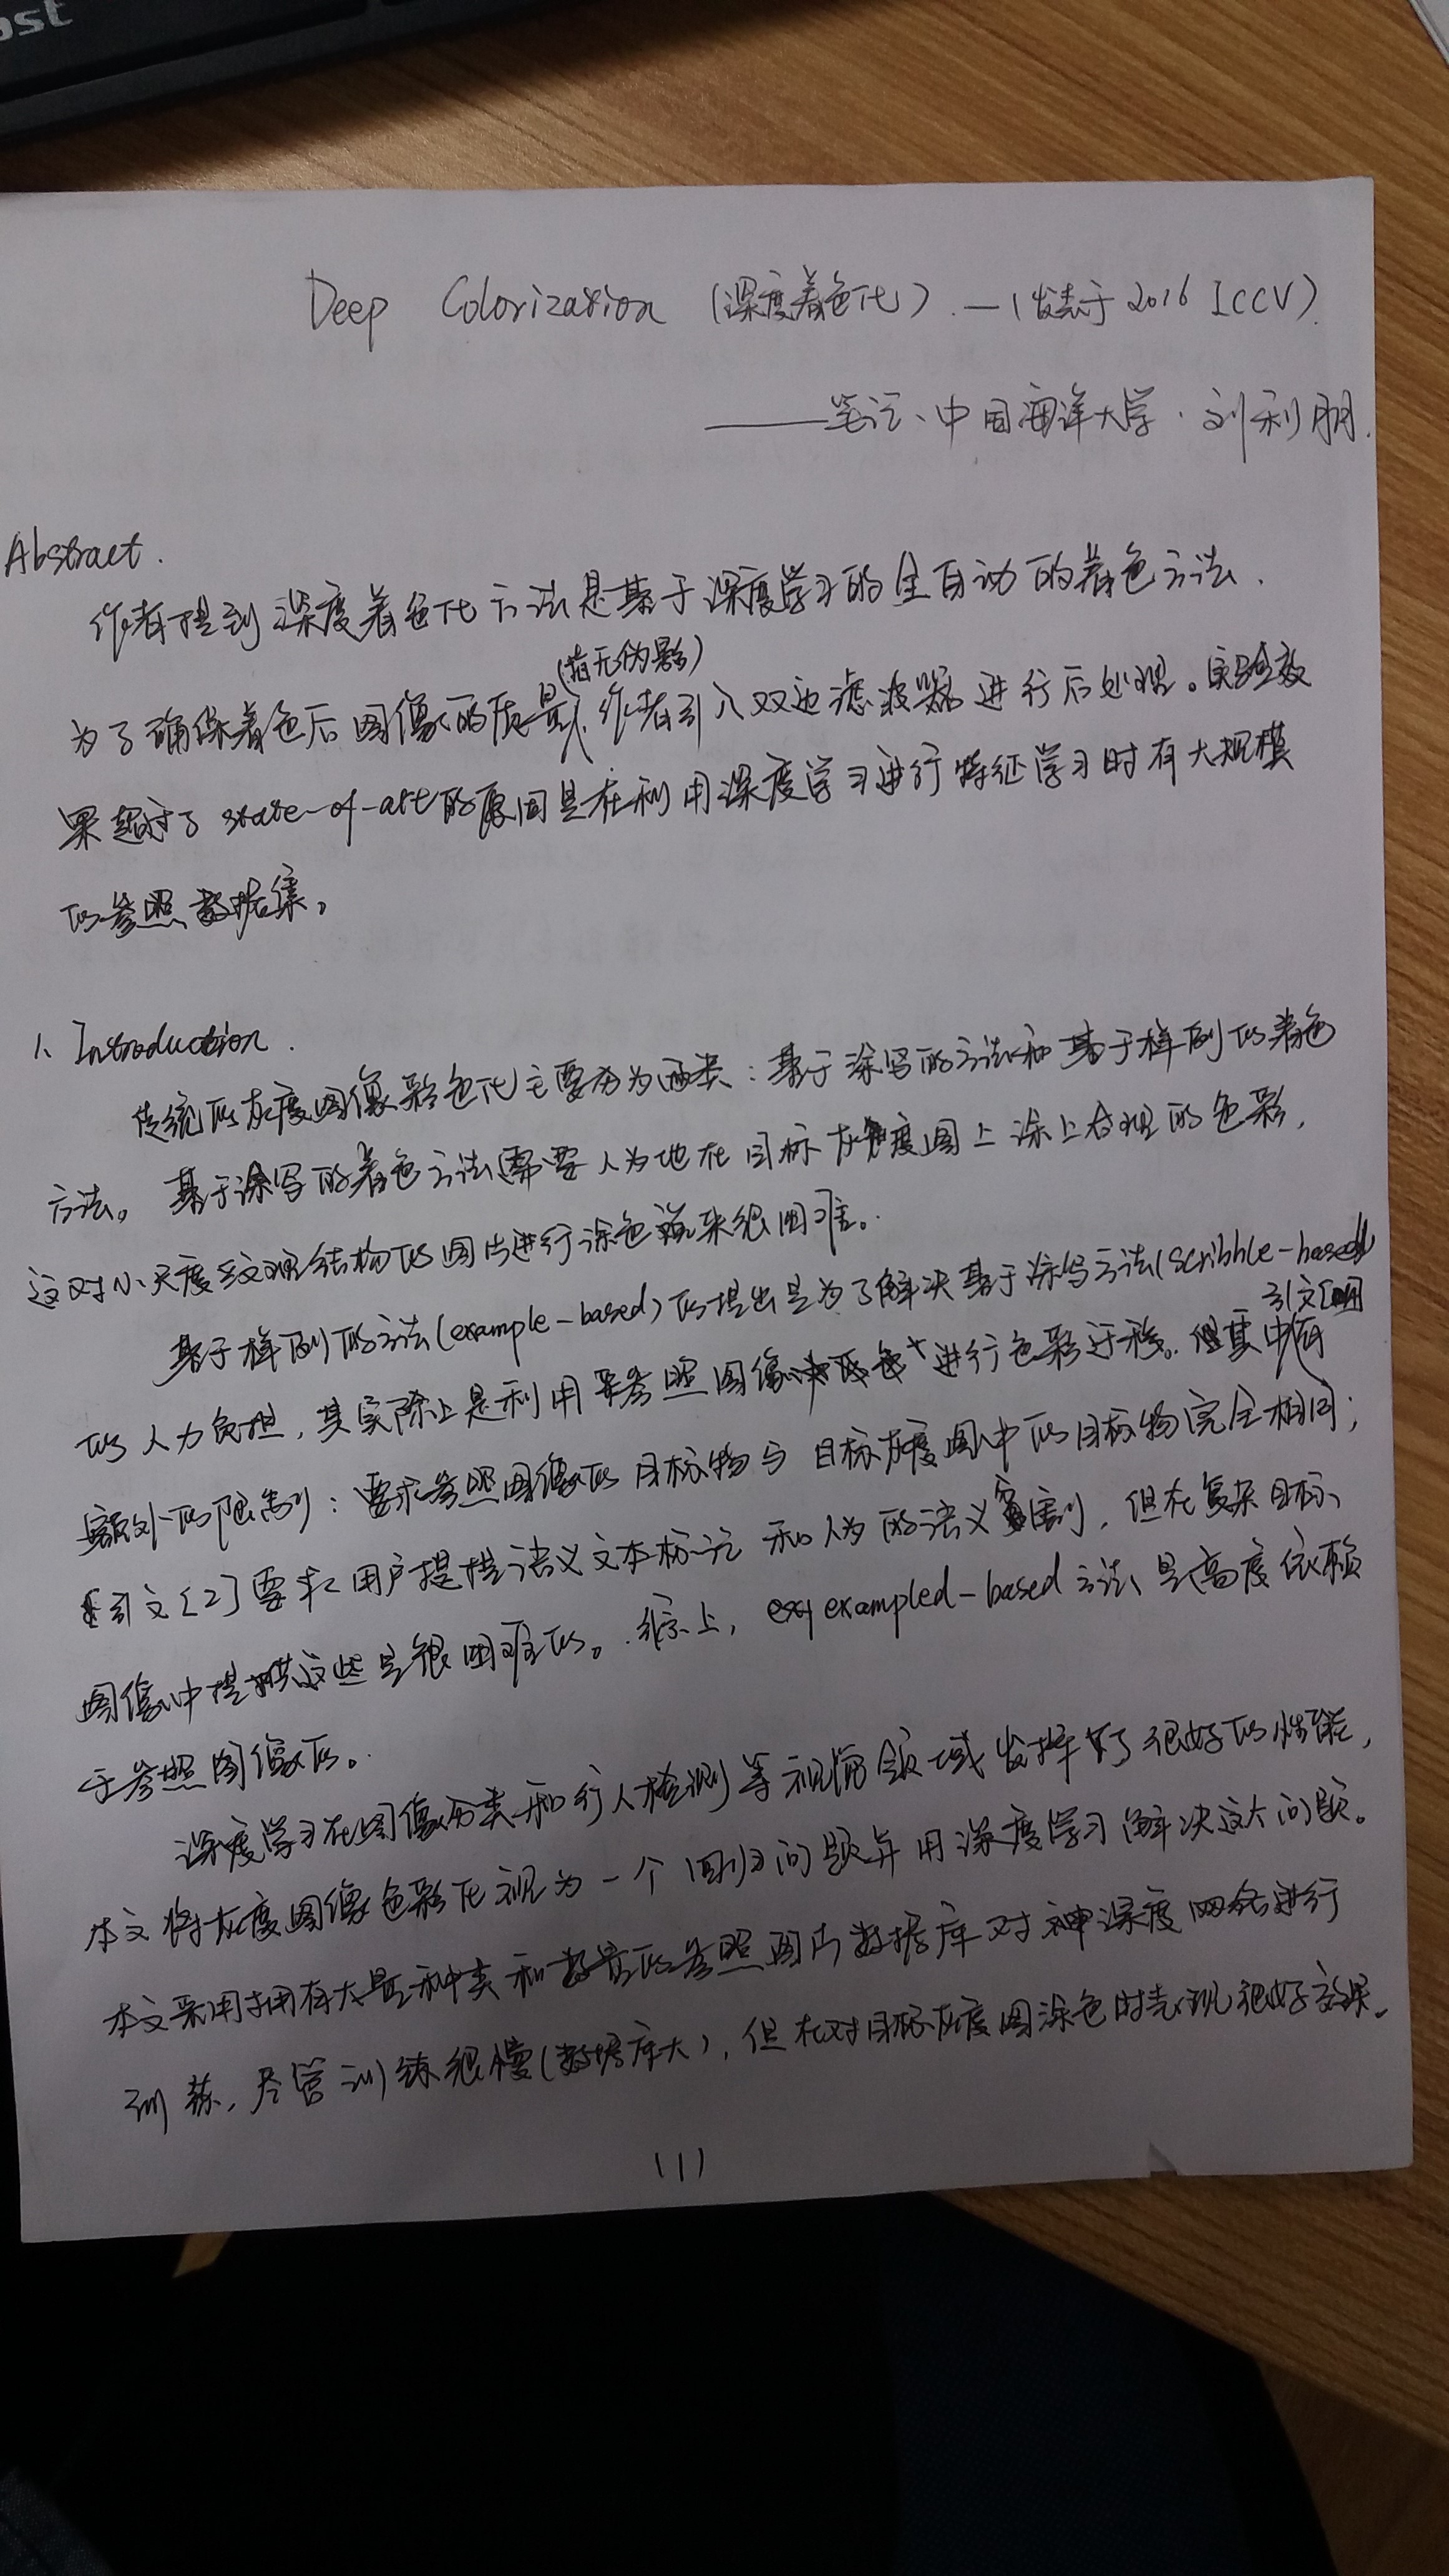 ost
Deep Colorization (深度着色化). —(发表于2016 ICCV).
——笔记、中国海洋大学·刘利朋.
Abstract.
作者提到深度着色化方法是基于深度学习的全自动的着色方法.
(指无伪影)
为了确保着色后图像的质量,作者引入双边滤波器进行后处理。实验效
果超过了state-of-art的原因是在利用深度学习进行特征学习时有大规模
的参照数据集。
1、Introduction.
传统的灰度图像彩色化主要分为两类:基于涂写的方法和基于样例的着色
方法。基于涂写的着色方法需要人为地在目标灰度图上涂上合理的色彩,
这对小尺度纹理结构的图片进行涂色就来很困难。
基于样例的方法(example-based)的提出是为了解决基于涂写方法(scribble-based)
引文[
的人力负担,其实际上是利用参照图像进行色彩迁移。但其中有
额外的限制:要求参照图像的目标物与目标灰度图中的目标物完全相同;
引文[2]要求用户提供语义文本标记和人为的语义分割,但在复杂目标
图像中提供这些是很困难的。综上,exampled-based方法是高度依赖
于参照图像的。
深度学习在图像分类和行人检测等视觉领域发挥了很好的性能,
本文将灰度图像色彩化视为一个回归问题并用深度学习解决这个问题。
本文采用拥有大量种类和数量的参照图片数据库对神深度网络进行
训练,尽管训练很慢(数据库大),但在对目标灰度图涂色时表现很好效果.
(1)